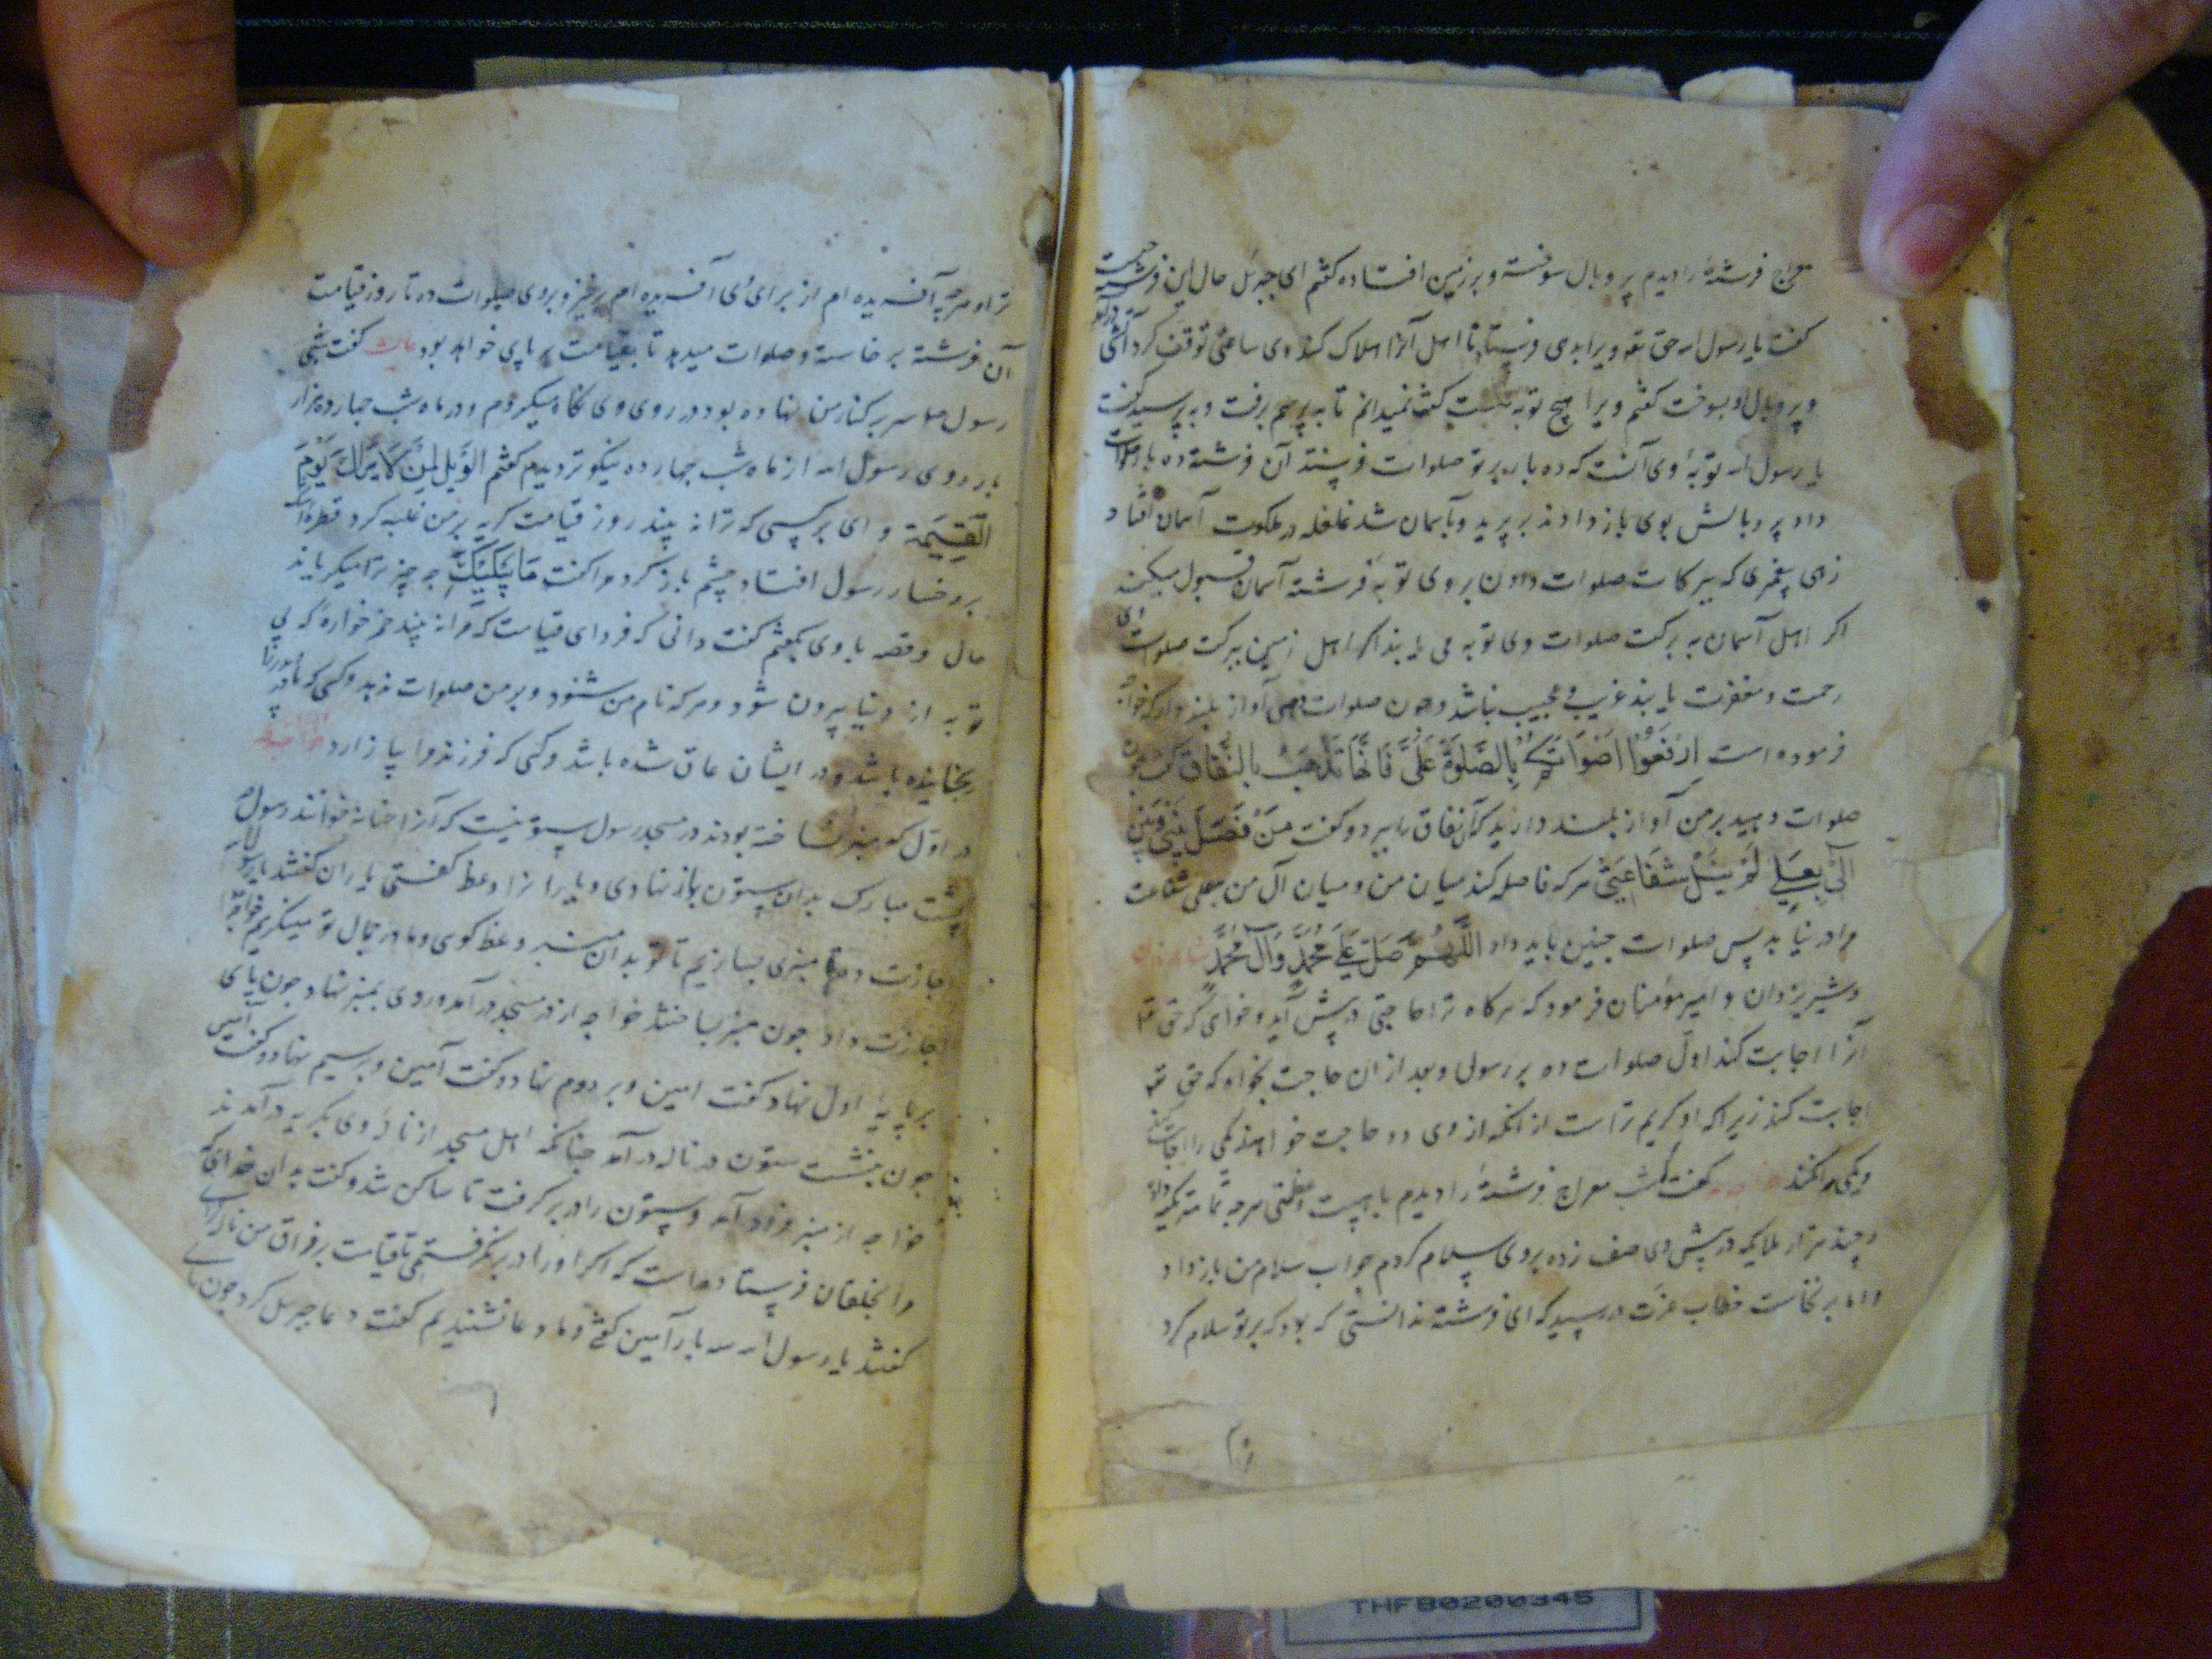 معراج فرشتهٔ را دیدم پر و بال سوخته و بر زمین افتاده گفتم ای جبرئیل حال این فرشته چیست
گفت یا رسول الله حق تع ویرا بدی فرستاد تا اهل آنرا هلاک کند وی ساعتی توقف کرد آتشی
و پر و بال او بسوخت گفتم ویرا هیچ توبه هست گفت نمیدانم تا بپرسم برفت و بپرسید گفت
یا رسول الله توبهٔ وی آنست که ده بار بر تو صلوات فرستد آن فرشته ده بار صلوات
داد پر و بالش بوی باز دادند بر پرید و بآسمان شد غلغله در ملکوت آسمان افتاد
زهی پیغمبری که ببرکات صلوات دادن بروی توبهٔ فرشته آسمان قبول میکند
اگر اهل آسمان به برکت صلوات وی توبه می یابند اگر اهل زمین ببرکت صلوات
رحمت و مغفرت یابند غریب و عجیب نباشد و چون صلوات دهی آواز بلند دار که خواجه
فرموده است ارْفَعُوا اَصْوَاتَكُمْ بِالصَّلَوةِ عَلَیَّ فَاِنَّهَا تَذْهَبُ بِالنِّفَاقِ گفت چون
صلوات دهید بر من آواز بلند دارید که آن نفاق را ببرد و گفت مَنْ فَصَلَ بَیْنِی وَبَیْنَ
آلِی بِعَلِی لَمْ یَنَلْ شَفَاعَتِی هر که فاصله کند میان من و میان آل من بعلی شفاعت
مرا در نیابد پس صلوات چنین باید داد اَللّٰهُمَّ صَلِّ عَلَی مُحَمَّدٍ وَآلِ مُحَمَّدٍ
و شیر یزدان و امیر مؤمنان فرمود که هرگاه ترا حاجتی در پیش آید و خواهی که حق تع
آنرا اجابت کند اول صلوات ده بر رسول و بعد از ان حاجت بخواه که حق تع
اجابت کند زیرا که او کریم تر است از آنکه از وی دو حاجت خواهند یکی را اجابت کند
و یکی را نکند گفت شب معراج فرشتهٔ را دیدم با هیبت و عظمتی هر چه تمامتر
و چند هزار ملایکه در پیش وی صف زده بروی سلام کردم جواب سلام من باز داد
و اما بر نخاست خطاب عزت در رسید که ای فرشته ندانستی که بود که بر تو سلام کرد
ترا و هر چه آفریده ام از برای وی آفریده ام بر خیز و بروی صلوات ده تا روز قیامت
آن فرشته بر خاسته و صلوات میدهد تا بقیامت بر پای خواهد بود عایشه گفت شبی
رسول ص سر بر کنار من نهاده بود در روی وی نگاه میکردم و در ماه شب چهارده
روی رسول الله از ماه شب چهارده نیکوتر دیدم گفتم الْوَیْلُ لِمَنْ لَا یَرَاكَ یَوْمَ
الْقِیٰمَةِ وای بر کسی که ترا نه بیند روز قیامت گریه بر من غلبه کرد قطرهٔ
بر رخسار رسول افتاد چشم باز کرد و گفت مَا یُبْكِیكِ چه چیز ترا میگریاند
حال و قصه با وی بگفتم گفت دانی که فردای قیامت که مرا نه بیند خمر خواره که بی
توبه از دنیا بیرون شود و هر که نام من شنود و بر من صلوات ندهد و کسی که مادر
برنجانیده باشد و در ایشان عاق شده باشد و کسی که فرزند را بیازارد
در اول که منبر نساخته بودند در مسجد رسول ستونیست که آنرا حنانه خوانند رسول
پشت مبارک بدان ستون باز نهادی و یارانرا وعظ گفتی یاران گفتند یا رسول الله
اجازت ده تا منبری بسازیم تا تو بدان منبر وعظ گوی و ما در جمال تو مینگریم خواجه
اجازت داد چون منبر بساختند خواجه از در مسجد در آمد و روی بمنبر نهاد چون پای
بر پایهٔ اول نهاد گفت امین و بر دوم نهاد و گفت آمین و بر سیم نهاد و گفت آمین
چون بنشست ستون در ناله در آمد چنانکه اهل مسجد از نالهٔ وی بگریه در آمدند
خواجه از منبر فرود آمد و ستون را در بر گرفت تا ساکن شد و گفت بدان خدای که
مرا بخلقان فرستاده است که اگر او را در بر نگرفتمی تا قیامت بر فراق من ناله
گفتند یا رسول الله سه بار آمین گفتی و ما دعا نشنیدیم گفت دعا جبرئیل کرد چون
THFB0200345